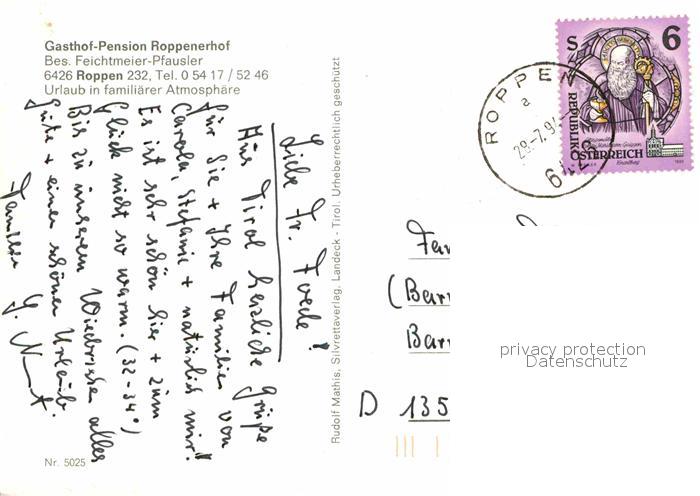 Gasthof-Pension Roppenerhof
Bes. Feichtmeier-Pfausler
6426 Roppen 232, Tel. 0 54 17 / 52 46
Urlaub in familiärer Atmosphäre
Liebe Fr.
Aus Tirol herzliche Grüße
für Sie + Ihre Familie von
Carola, Stefanie + natürlich mir!
Es ist sehr schön hier + zum
Glück nicht so warm. (32-34°)
Bis zu unserem Wiedersehen alles
Gute + einen schönen Urlaub.
Familie G.
Nr. 5025
Rudolf Mathis, Silvrettaverlag, Landeck - Tirol. Urheberrechtlich geschützt
ROPPEN
a
S 6
REPUBLIK
ÖSTERREICH
Fam
(Bar
Bar
D 135
privacy protection
Datenschutz